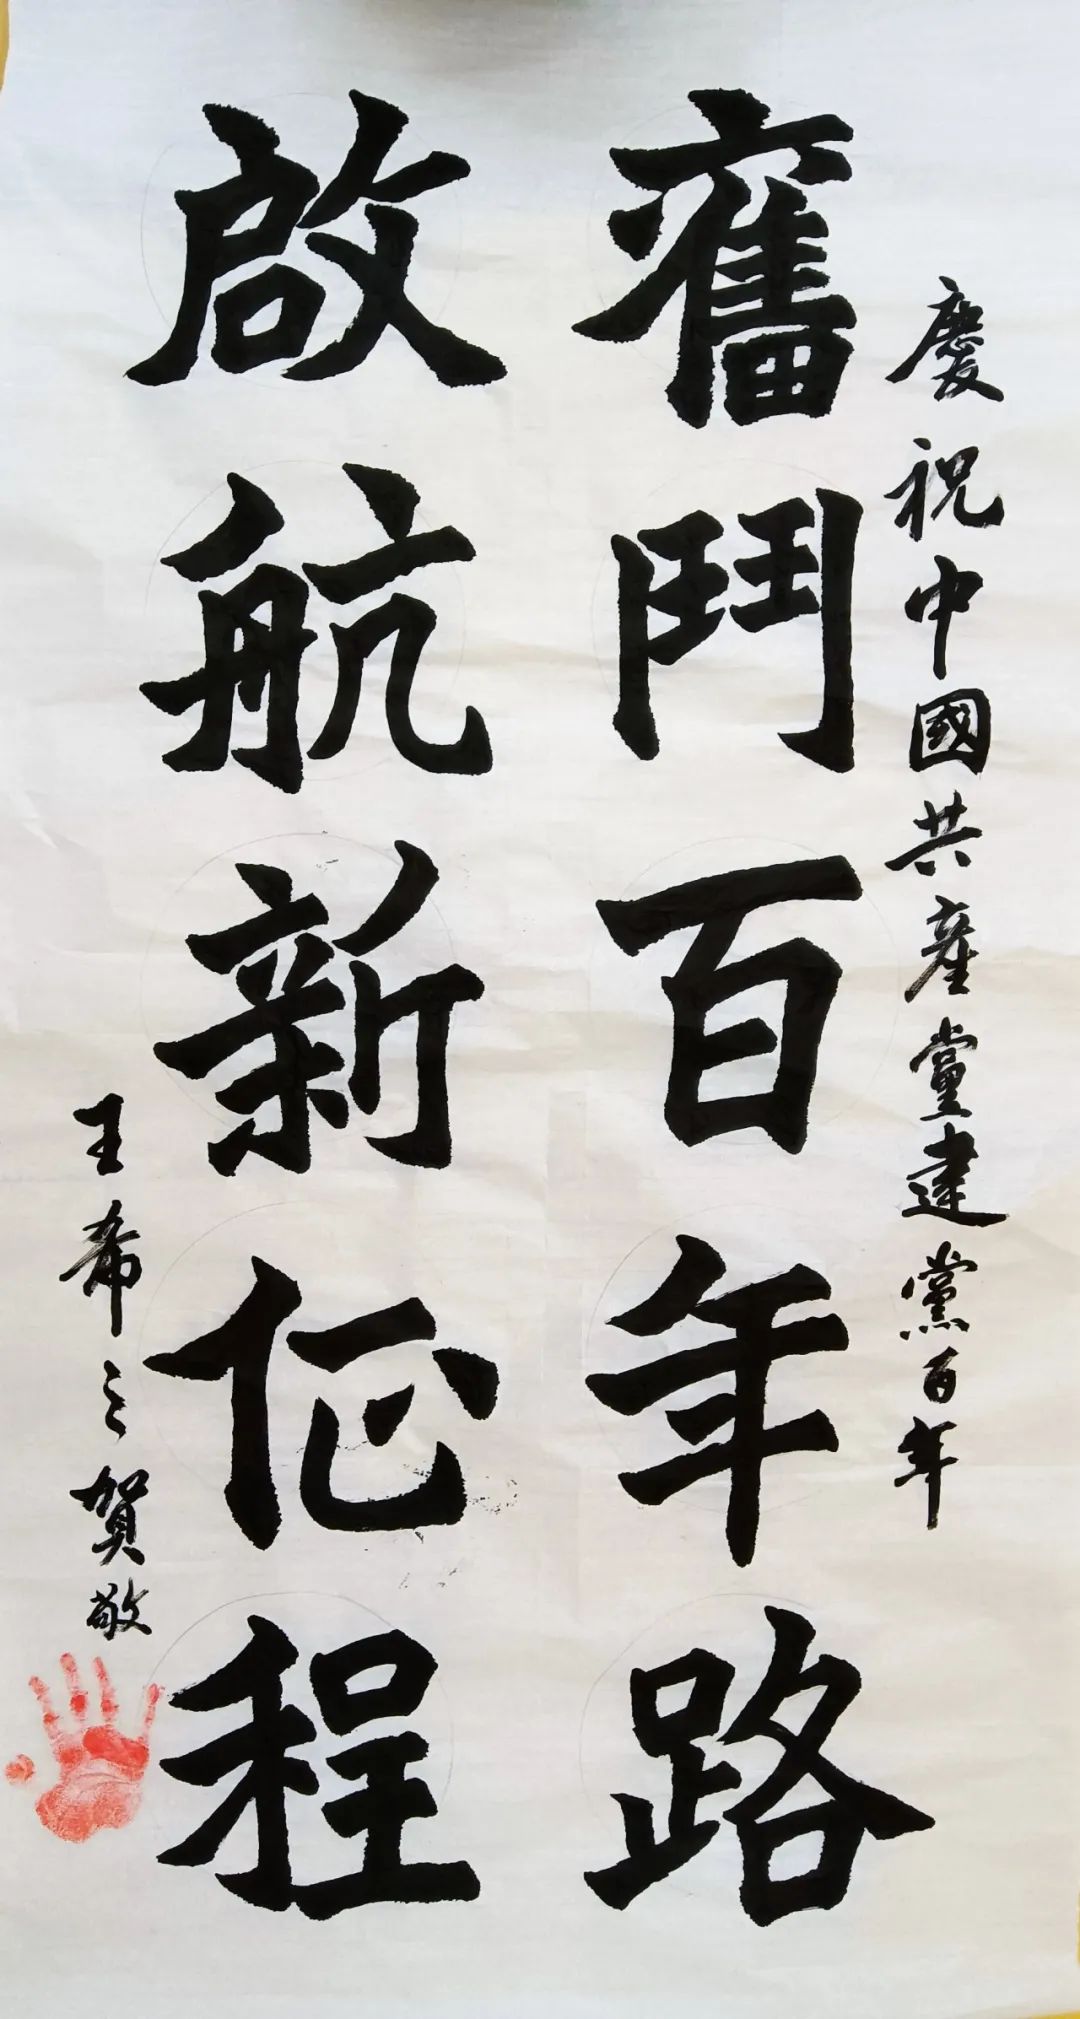 慶祝中國共產黨建黨百年
奮鬥百年路
啟航新征程
王希之賀敬